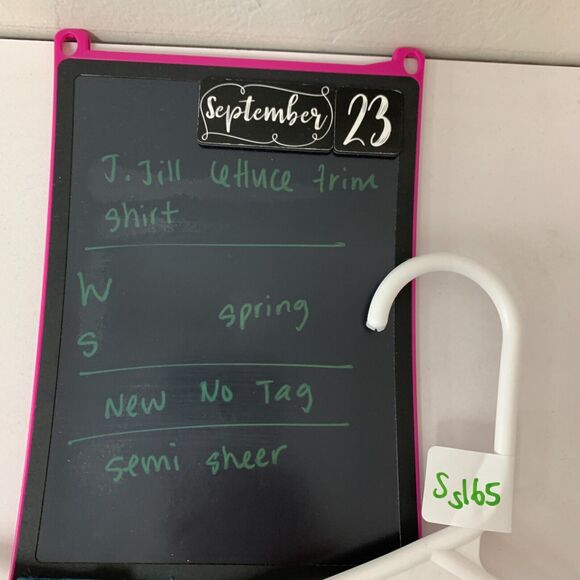 September 23
J. Jill lettuce trim
shirt
W
spring
S
New No Tag
semi sheer
Ss165